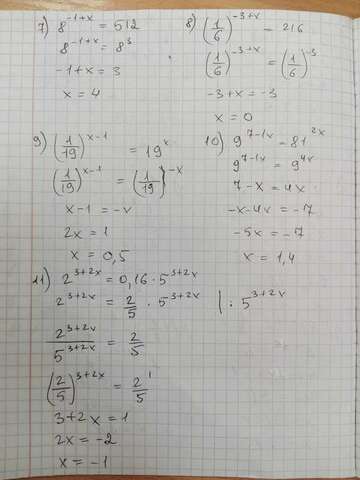 7) 8^(-1+x) = 512
8^(-1+x) = 8^3
-1+x = 3
x = 4
8) (1/6)^(-3+x) = 216
(1/6)^(-3+x) = (1/6)^(-3)
-3+x = -3
x = 0
9) (1/19)^(x-1) = 19^x
(1/19)^(x-1) = (1/19)^(-x)
x-1 = -x
2x = 1
x = 0,5
10) 9^(7-1x) = 81^(2x)
9^(7-1x) = 9^(4x)
7-x = 4x
-x-4x = -7
-5x = -7
x = 1,4
11) 2^(3+2x) = 0,16 · 5^(3+2x)
2^(3+2x) = 2/5 · 5^(3+2x) | : 5^(3+2x)
2^(3+2x)/5^(3+2x) = 2/5
(2/5)^(3+2x) = 2^1/5
3+2x = 1
2x = -2
x = -1